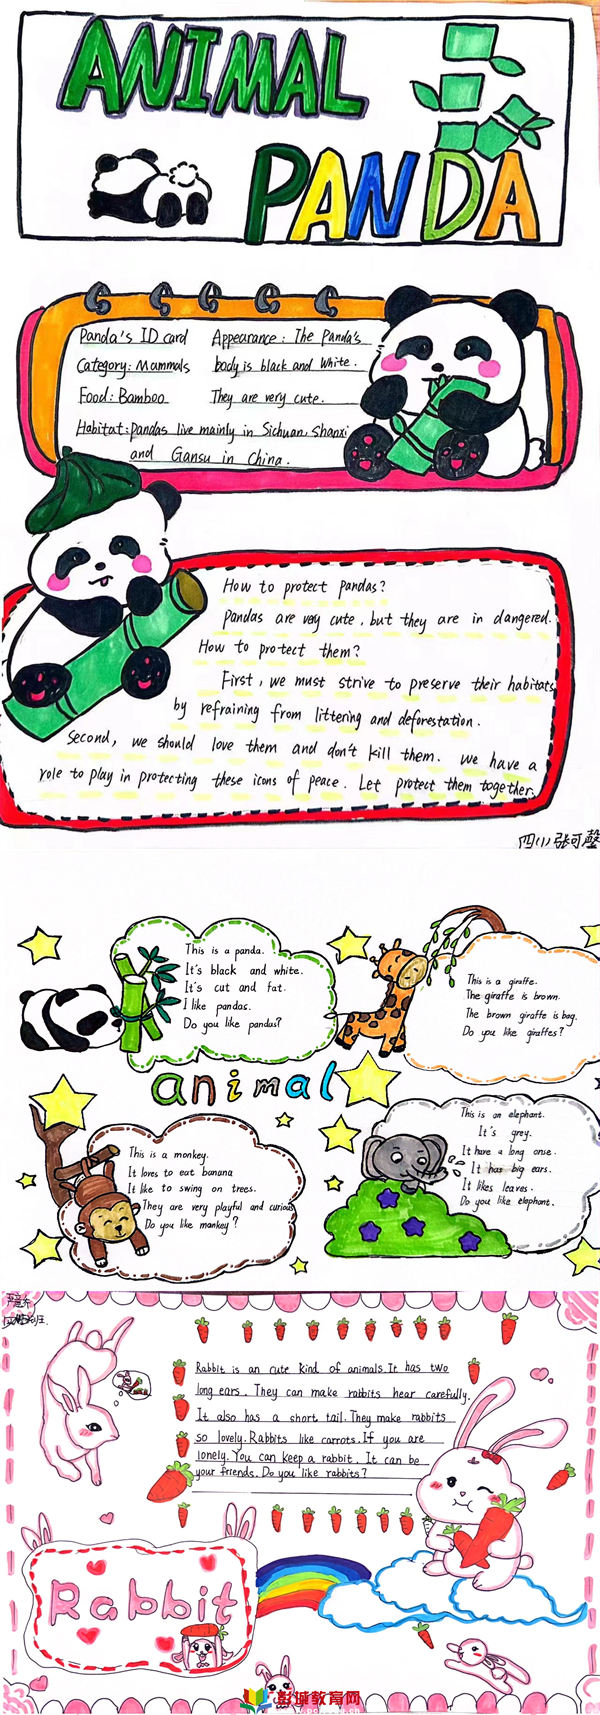 ANIMAL
PANDA
Panda's ID card
Category: Mammals
Food: Bamboo
Appearance: The Panda's
body is black and white.
They are very cute.
Habitat: pandas live mainly in Sichuan, Shanxi
and Gansu in China.
How to protect pandas?
Pandas are very cute, but they are in dangered.
How to protect them?
First, we must strive to preserve their habitats
by refraining from littering and deforestation.
Second, we should love them and don't kill them. We have a
role to play in protecting these icons of peace. Let protect them together.
四(1)张可馨
This is a panda.
It's black and white.
It's cut and fat.
I like pandas.
Do you like pandas?
This is a giraffe.
The giraffe is brown.
The brown giraffe is bag.
Do you like giraffes?
animal
This is a monkey.
It loves to eat banana
It like to swing on trees.
They are very playful and curious
Do you like monkey?
This is an elephant.
It's grey.
It have a long onse.
It has big ears.
It likes leaves.
Do you like elephant.
Rabbit is an cute kind of animals. It has two
long ears. They can make rabbits hear carefully.
It also has a short tail. They make rabbits
so lovely. Rabbits like carrots. If you are
lonely. You can keep a rabbit. It can be
your friends. Do you like rabbits?
Rabbit
彭城教育网